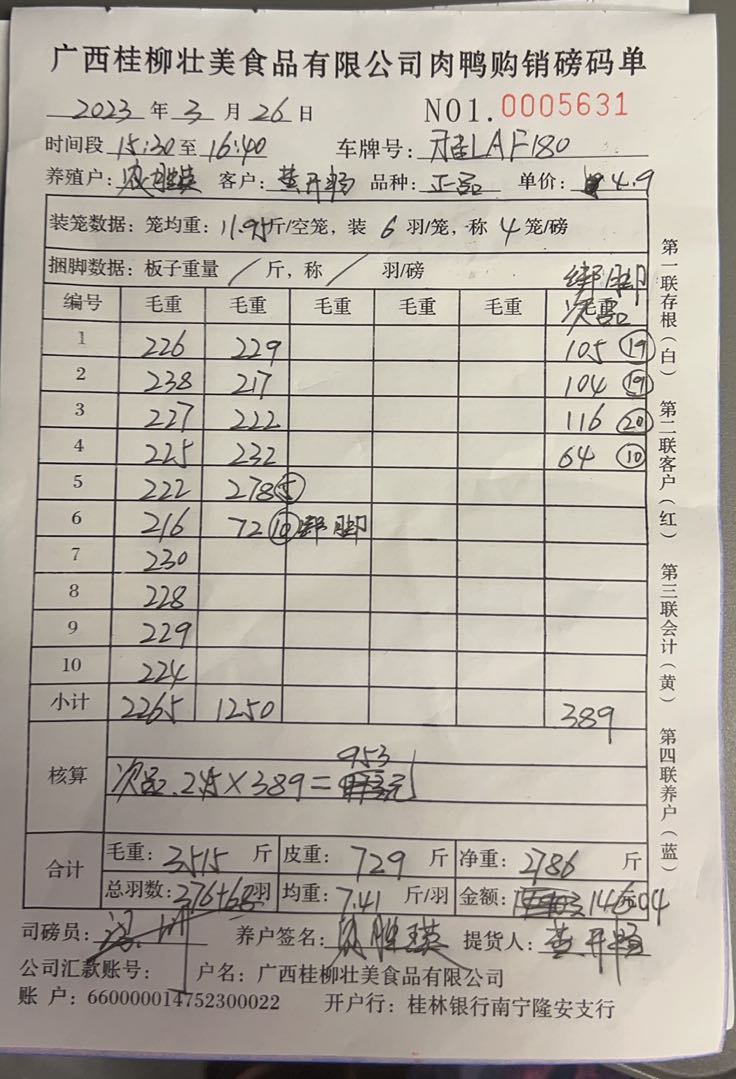 广西桂柳壮美食品有限公司肉鸭购销磅码单
2023 年 3 月 26 日 NO1.0005631
时间段 15:30 至 16:40 车牌号: 桂LAF180
养殖户: 客户: 黄开杨 品种: 正品 单价: 4.9
装笼数据: 笼均重: 11.95 斤/空笼, 装 6 羽/笼, 称 4 笼/磅
捆脚数据: 板子重量 / 斤, 称 / 羽/磅 绑脚
编号 毛重 毛重 毛重 毛重 毛重 毛重 次品
1 226 229 105 19
2 238 217 104 19
3 227 222 116 20
4 225 232 64 10
5 222 278 5
6 216 72 10 绑脚
7 230
8 228
9 229
10 224
小计 2265 1250 389
核算 953
次品. 2.45 × 389 = 元
合计 毛重: 3515 斤 皮重: 729 斤 净重: 2786 斤
总羽数: 276+68 羽 均重: 7.41 斤/羽 金额: 14604
司磅员: 养户签名: 提货人: 黄开杨
公司汇款账号: 户名: 广西桂柳壮美食品有限公司
账 户: 660000014752300022 开户行: 桂林银行南宁隆安支行
第一联存根(白) 第二联客户(红) 第三联会计(黄) 第四联养户(蓝)